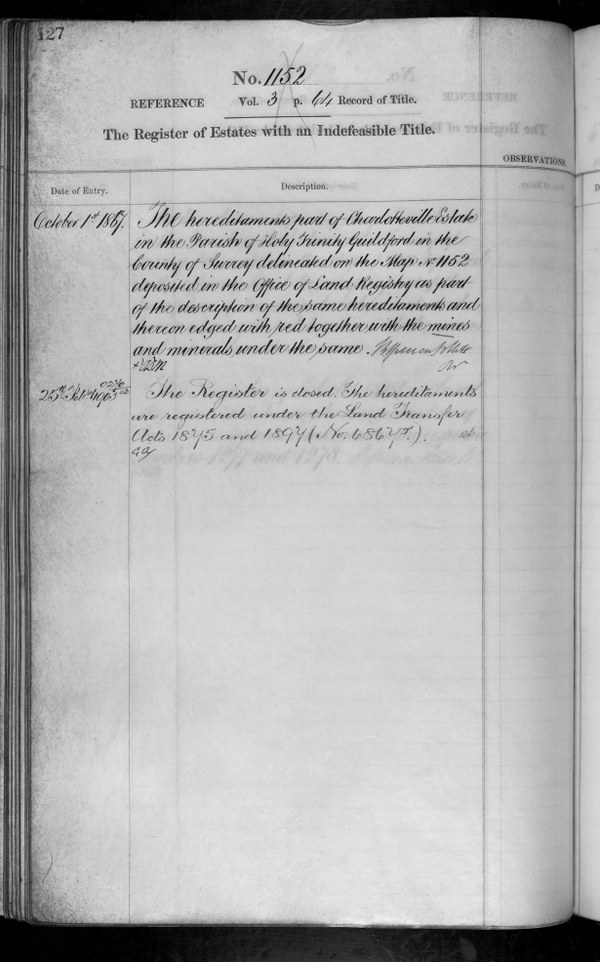 127
No. 1152
REFERENCE Vol. 3 p. 64 Record of Title.
The Register of Estates with an Indefeasible Title.
OBSERVATIONS.
Date of Entry.
Description.
October 1st 1867.
The hereditaments part of Charlotteville Estate
in the Parish of Holy Trinity Guildford in the
County of Surrey delineated on the Map No 1152
deposited in the Office of Land Registry as part
of the description of the same hereditaments and
thereon edged with red together with the mines
and minerals under the same.
25th
The Register is closed. The hereditaments
are registered under the Land Transfer
Acts 1875 and 1897 (No. 68677.).